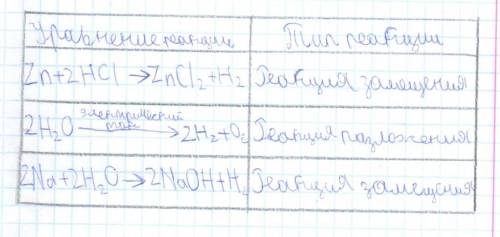 Уравнение реакции Тип реакции
Zn+2HCl→ZnCl₂+H₂ Реакция замещения
электрический
ток
2H₂O→2H₂+O₂ Реакция разложения
2Na+2H₂O→2NaOH+H₂ Реакция замещения